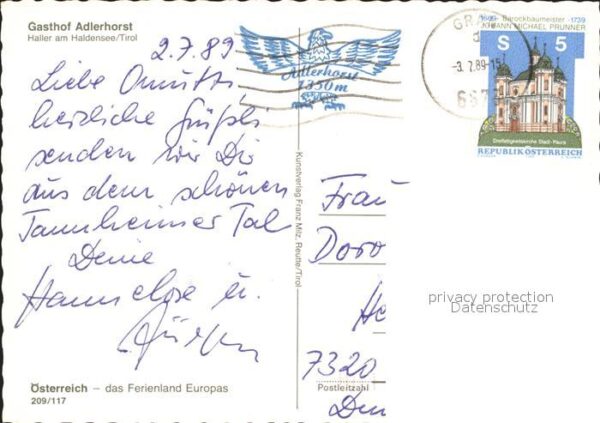 Gasthof Adlerhorst
Haller am Haldensee/Tirol
2.7.89
Liebe
herzliche
senden wir Dir
aus dem schönen
Tannheimer Tal
Deine
Hannelore u.
Jürgen
Österreich – das Ferienland Europas
209/117
Adlerhorst
1250m
Kunstverlag Franz Milz, Reutte/Tirol
GR
-3.7.89-15
667
1699 Barockbaumeister 1739
JOHANN MICHAEL PRUNNER
S 5
Dreifaltigkeitskirche Stadl-Paura
REPUBLIK ÖSTERREICH
Frau
Doro
He
privacy protection
Datenschutz
7320
Postleitzahl